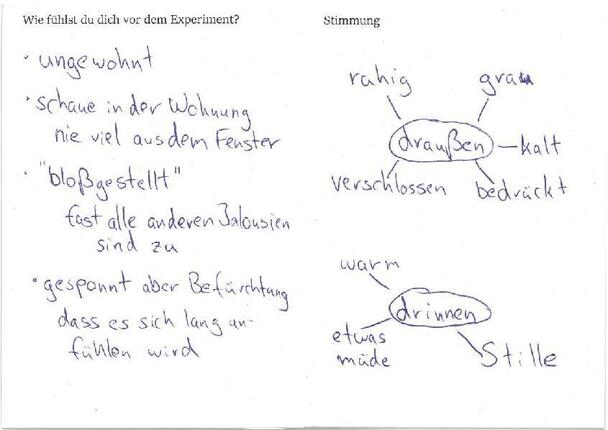 Wie fühlst du dich vor dem Experiment?
• ungewohnt
• schaue in der Wohnung
nie viel aus dem Fenster
• "bloßgestellt"
fast alle anderen Jalousien
sind zu
• gespannt aber Befürchtung
dass es sich lang an-
fühlen wird
Stimmung
ruhig
grau
draußen
kalt
verschlossen
bedrückt
warm
drinnen
etwas
müde
Stille